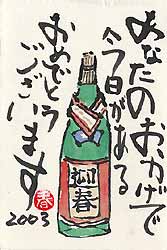 あなたのおかげで
今日がある
おめでとう
ございます
迎春
春
2003